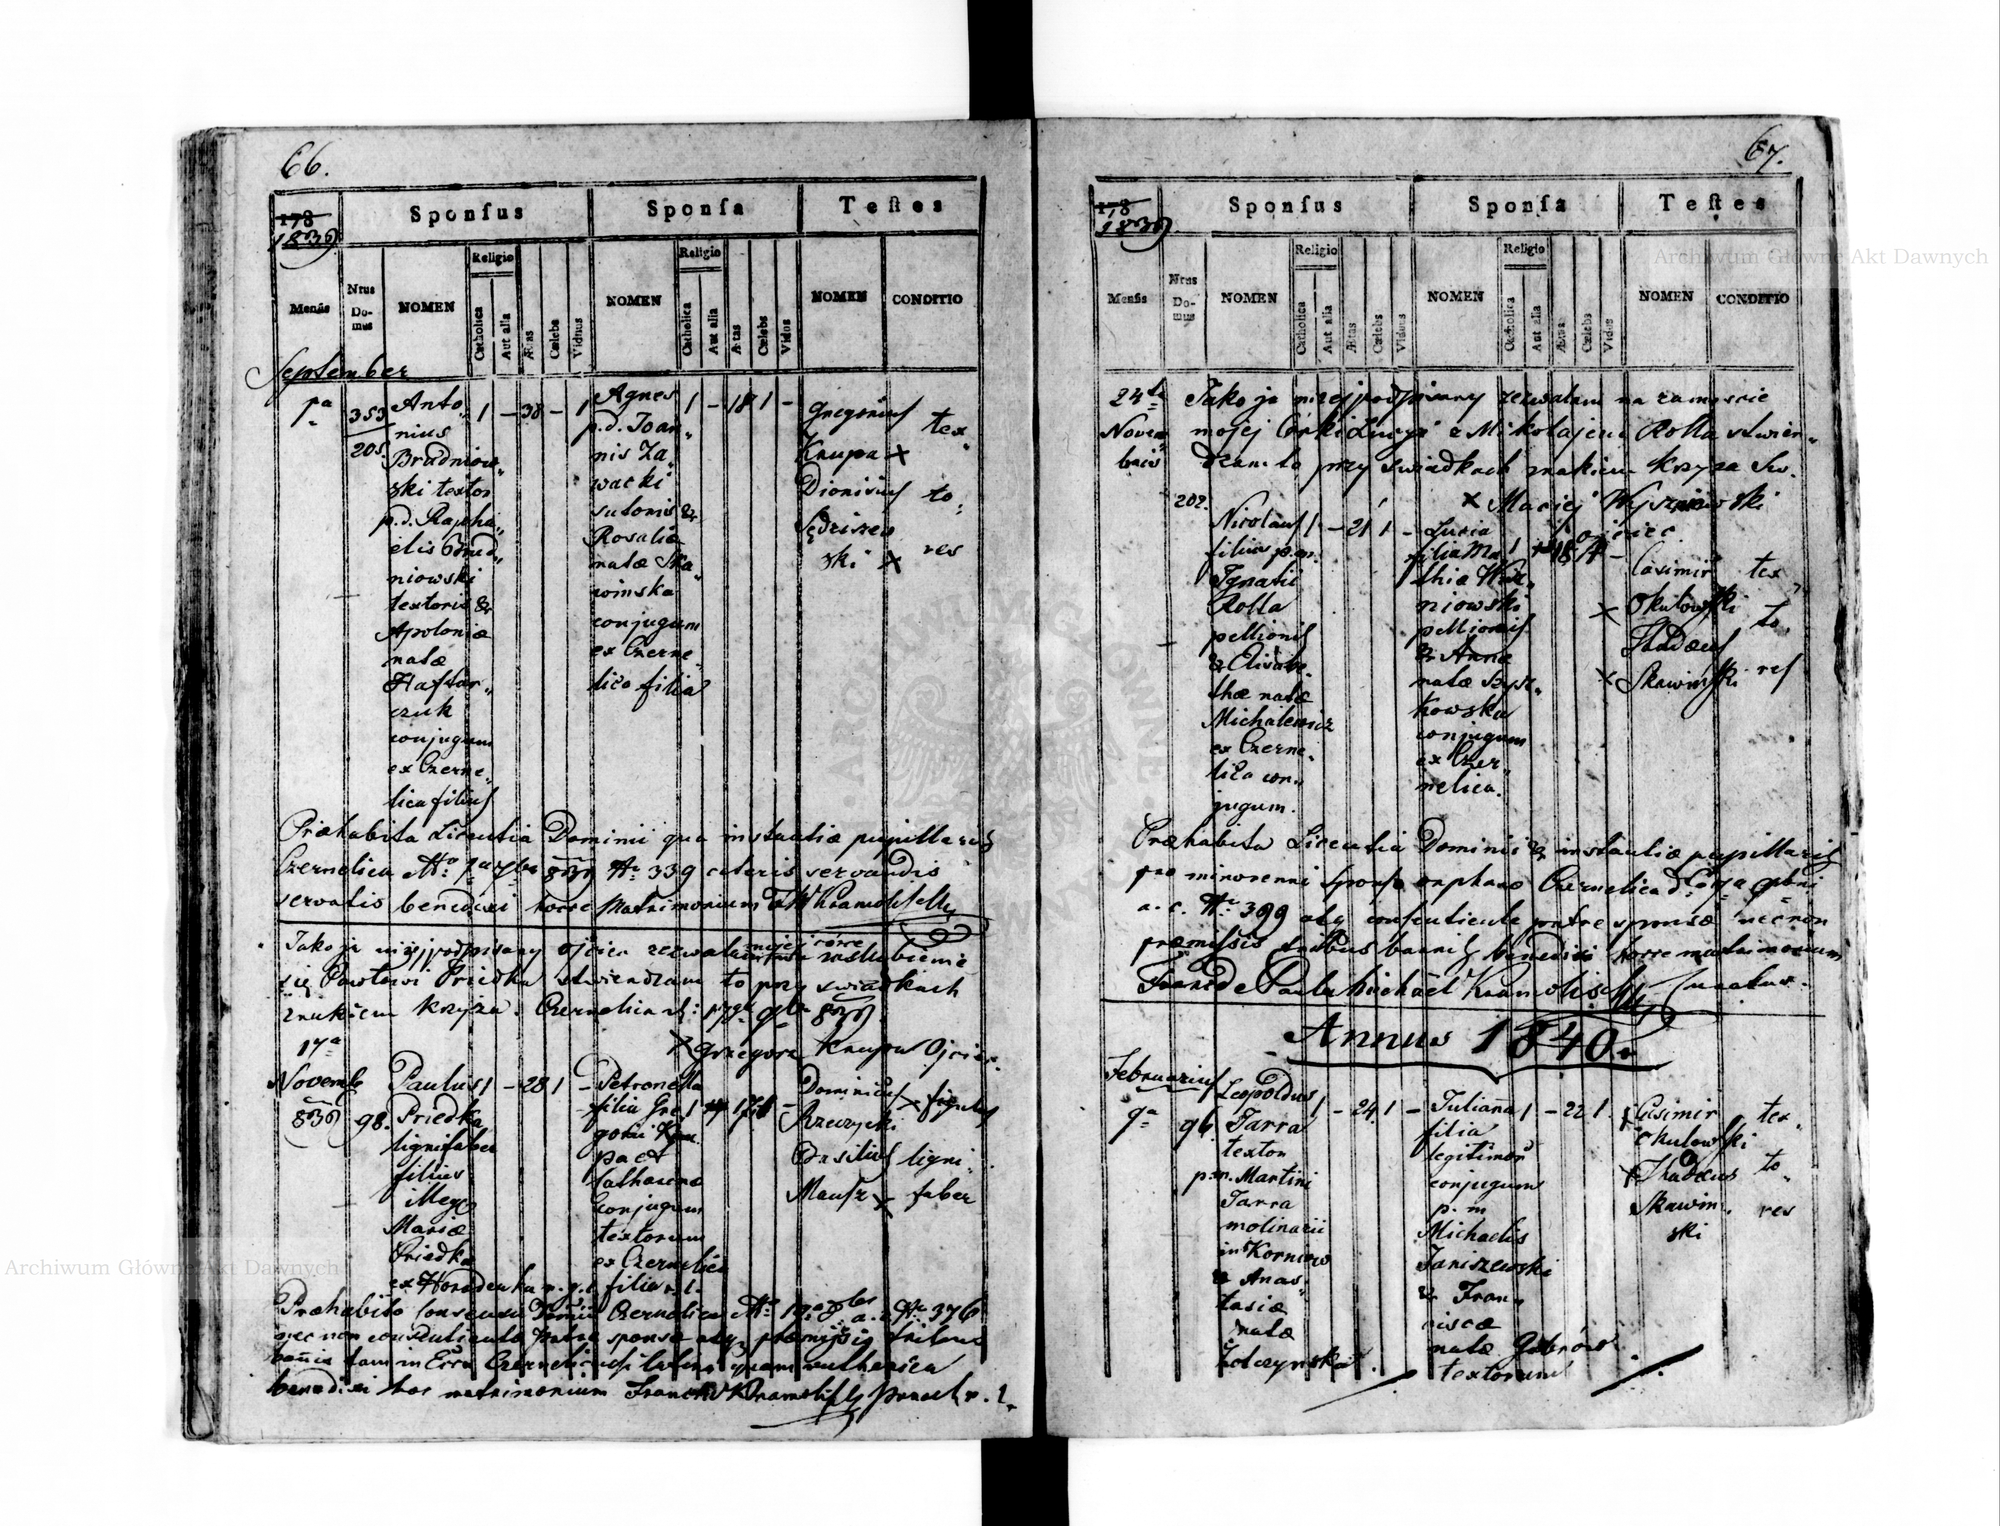 66.
178
1839
Sponſus
Sponſa
Teſtes
Menſis
Nrus Do-mus
NOMEN
Religio
Catholica
Aut alia
Ætas
Cœlebs
Viduus
NOMEN
Religio
Catholica
Aut alia
Ætas
Cœlebs
Vidua
NOMEN
CONDITIO
September
1a
353
205
Anto
nius
Bradniow
ski textor
p.d. Rapha
elis Brad
niowski
textoris &
Apoloniæ
natæ
Haftar
czuk
conjugum
ex Czerne
lica filius
1 – 38 – 1
Agnes
p.d. Joan
nis Za
wacki
sutoris &
Rosaliæ
natæ Ska
winska
conjugum
ex Czerne
lica filia
1 – 18 1 –
Gregorius
Krupa x
Dionisius
Sędziszew
ski x
tex
to
res
Præhabita Licentia Dominii qua instantiæ pupillaris
Czernelica 839 No 339 ceteris servandis
servatis benedixi hocce Matrimonium
Jako ja niżej podpisany ojciec zezwalam mojej córce zaślubienie
się Pawłowi Priedka stwierdzam to przy świadkach
znakiem krzyża. Czernelica 839
x Grzegorz Krupa Ojciec
17a
Novemb
839
98.
Paulus
Priedka
lignifaber
filius
illeg.
Mariæ
Priedka
ex Horodenka r. g. c.
1 – 28 1 –
Petronella
filia Gre
gorii Kru
pa et
Catharinæ
conjugum
textorum
ex Czernelica
filia r. l.
Dominicus x
Rzeczycki
Basilius
Mausz x
figulus
ligni
faber
Præhabito Consensu Czernelica a. c. No 376
nec non consentiente patre sponsæ atq præmissis tribus
bannis tam in Ecca Czernelicensi latina quam ruthenica
benedixi hoc matrimonium
67.
178
1839
Sponſus
Sponſa
Teſtes
Menſis
Nrus Do-mus
NOMEN
Religio
Catholica
Aut alia
Ætas
Cœlebs
Viduus
NOMEN
Religio
Catholica
Aut alia
Ætas
Cœlebs
Vidua
NOMEN
CONDITIO
24ta
Novem
bris
Jako ja niżej podpisany zezwalam na zamęscie
mojej Córki Lucyi z Mikołajem Rolla stwier
dzam to przy świadkach znakiem krzyża Sw.
x Maciej Wyszniowski
ojciec
202.
Nicolaus
filius p.m.
Ignatii
Rolla
pellionis
& Elisabe
thæ natæ
Michalewicz
ex Czerne
lica con
jugum.
1 – 21 1 –
Lucia
filia Ma
thiæ Wisz
niowski
pellionis
& Annæ
natæ
kowska
conjugum
ex Czer
nelica.
Casimir
x Okulowski
Thadæus
x Skawinski
tex
to
res
Præhabita Licentia Dominii & instantiæ pupillaris
pro minorenni sponso orphano Czernelica
a. c. No 399 atq consentiente patre sponsæ necnon
præmissis tribus bannis benedixi hocce matrimonium
Franc de Paula Michael Kramolisch Curatus.
Annus 1840.
Februarius
9a
96.
Leopoldus
Tarra
textor
p.m. Martini
Tarra
molinarii
in Korniow
& Anas
tasiæ
natæ
Zolczynska.
1 – 24 1 –
Julianna
filia
legitimor
conjugum
p. m
Michaelis
Janiszewski
& Fran
ciscæ
natæ
textorum
1 – 22 1.
x Casimir
Okulowski
x Thadæus
Skawin
ski
tex
to
res
Archiwum Główne Akt Dawnych
Archiwum Główne Akt Dawnych